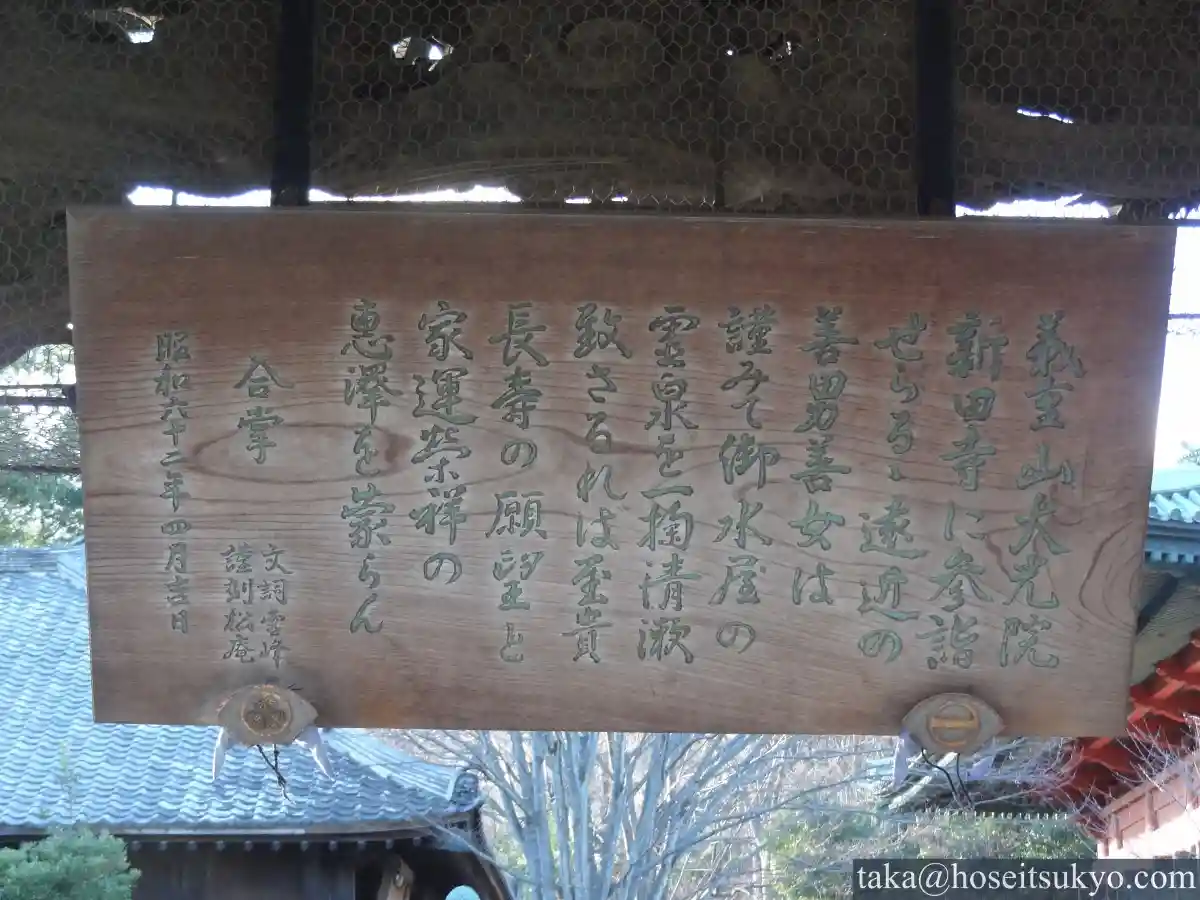 義重山大光院
新田寺に参詣
せらるゝ遠近の
善男善女は
謹みて御水屋の
霊泉を一掬清漱
致さるれば至貴
長寿の願望と
家運栄祥の
恵澤を蒙らん
合掌
文詞雪峰
謹刻松庵
昭和六十二年四月吉日
taka@hoseitsukyo.com